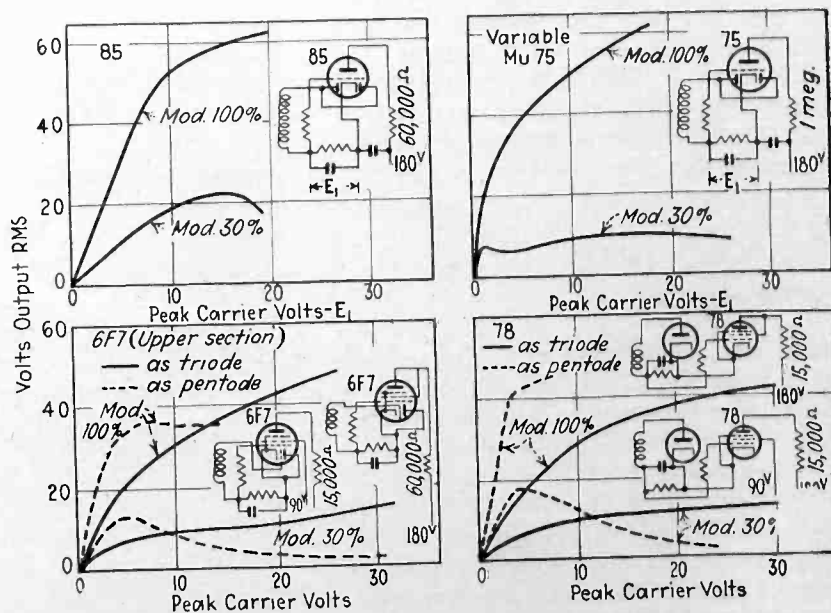 Volts Output RMS
60
40
20
0
85
Mod. 100%
Mod. 30%
85
60,000 Ω
180V
E₁
0
10
20
30
Peak Carrier Volts-E₁
Variable
Mu 75
Mod. 100%
Mod. 30%
75
1 meg.
180V
E₁
0
10
20
30
Peak Carrier Volts-E₁
60
40
20
0
6F7 (Upper section)
as triode
as pentode
Mod.
100%
6F7
15,000Ω
90V
6F7
60,000Ω
180V
Mod. 30%
0
10
20
30
Peak Carrier Volts
78
as triode
as pentode
Mod. 100%
78
15,000Ω
180V
78
15,000Ω
90V
Mod. 30%
0
10
20
30
Peak Carrier Volts